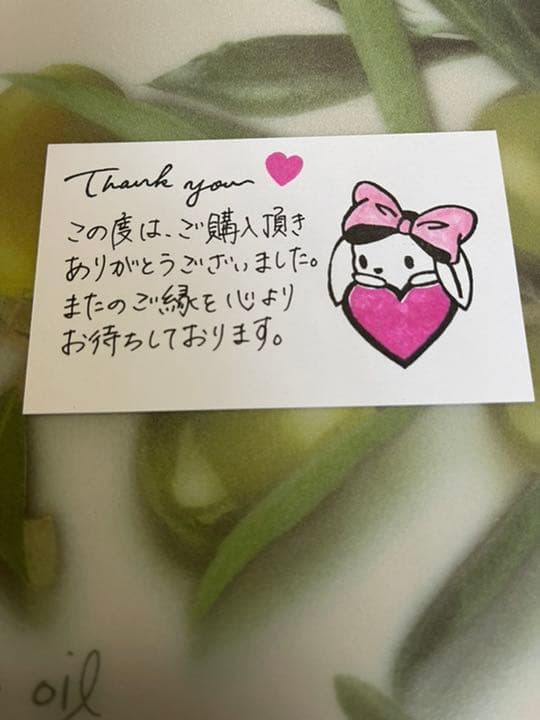 Thank you
この度は、ご購入頂き
ありがとうございました。
またのご縁を心より
お待ちしております。
oil